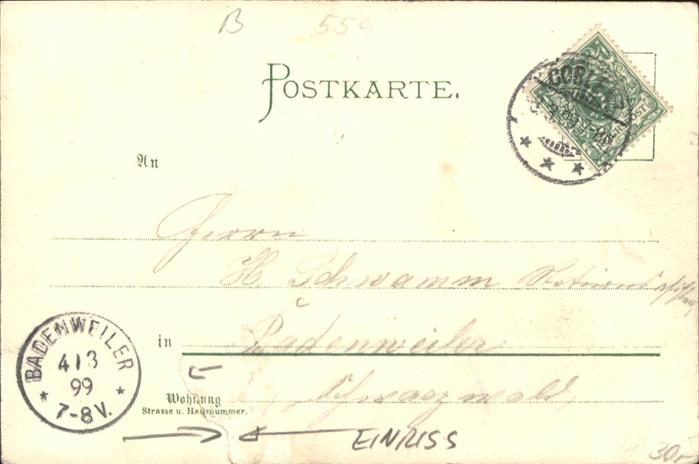 B 559
POSTKARTE.
An
Herrn
H. Schwamm
in Badenweiler
Schwarzwald
Wohnung
Strasse u. Hausnummer.
BADENWEILER
4/3
99
7-8V.
EINRISS
30,-